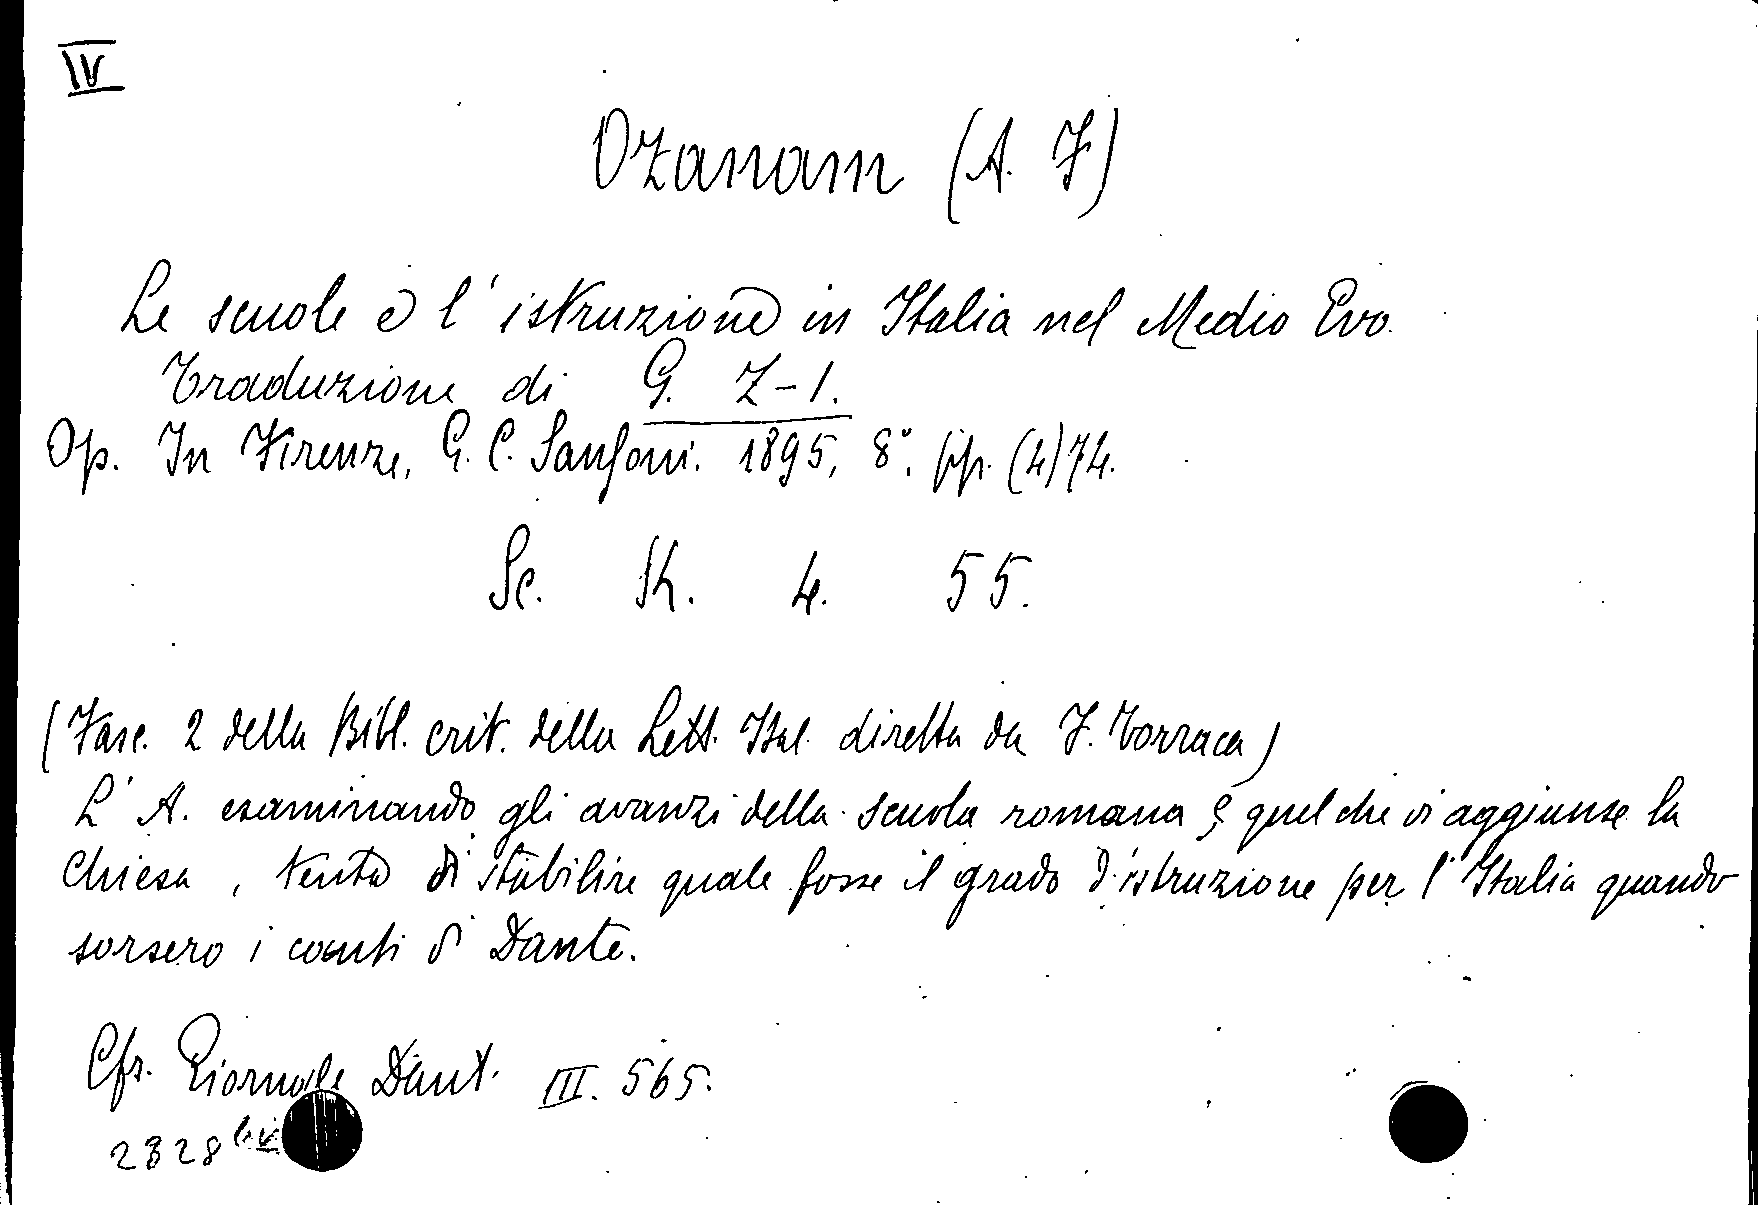 IV
Ozanam (A. F)
Le scuole e l'istruzione in Italia nel Medio Evo.
Traduzione di G. Z-l.
Op. In Firenze, G. C. Sansoni. 1895, 8°. pp. (4) 74.
Sc. K. 4. 55.
(Fasc. 2 della Bibl. crit. della Lett. Ital. diretta da F. Torraca)
L'A. esaminando gli avanzi della scuola romana e quel che vi aggiunse la
Chiesa, tenta di stabilire quale fosse il grado d'istruzione per l'Italia quando
sorsero i canti di Dante.
Cfr. Giornale Dant. III. 565.
2828 bis